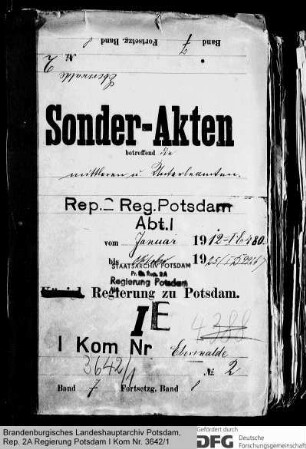 Band 7 Fortsetzg. Band
Eberswalde № 2
Sonder-Akten
betreffend die
mittleren u. Unterbeamten.
Rep. 2 Reg. Potsdam
Abt. I
vom Januar 1912
bis 19
STAATSARCHIV POTSDAM
Pr. Br. Rep. 2A
Regierung Potsdam
Regierung zu Potsdam.
I E
I Kom Nr Eberswalde
3642/1 № 2
Band 7 Fortsetzg. Band
Brandenburgisches Landeshauptarchiv Potsdam,
Rep. 2A Regierung Potsdam I Kom Nr. 3642/1
Gefördert durch
DFG Deutsche
Forschungsgemeinschaft